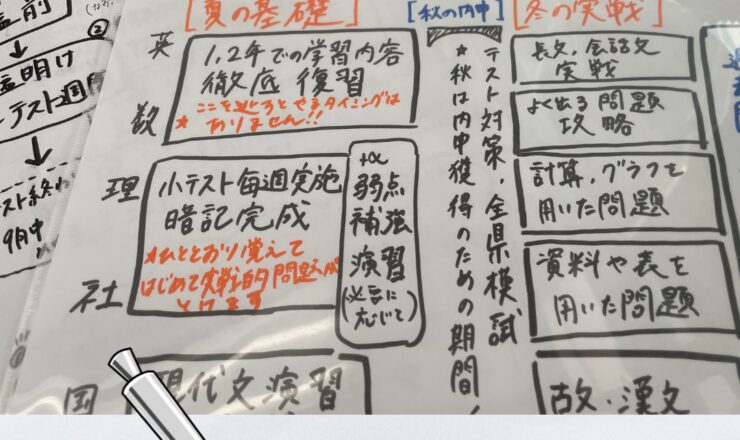 前
②
明け
テスト週
スト終わ
9月中
[夏の基礎]
[秋の内申]
[冬の実戦]
英
数
理
社
国
1,2年での学習内容
徹底復習
★ここを逃すとやるタイミングは
ありません!!
小テスト毎週実施
暗記完成
★ひととおり覚えて
はじめて実戦的問題が
とけます
+α
弱点
補強
演習
(必要に
応じて)
現代文演習
テスト対策、全県模試
★秋は内申獲得のための期間!
長文、会話文
実戦
よく出る問題
攻略
計算、グラフを
用いた問題
資料や表を
用いた問題
古文・漢文